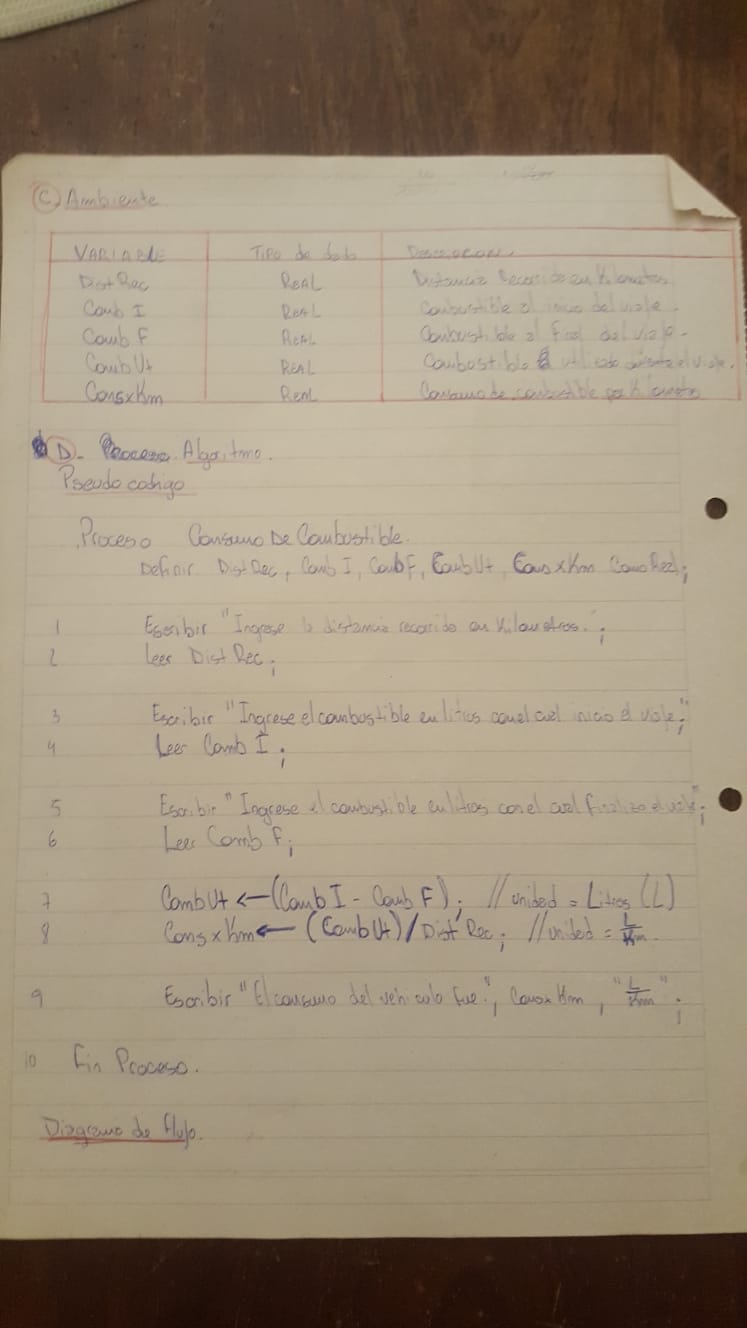 C) Ambiente
VARIABLE Tipo de dato Descripcion
Dist Rec Real Distancia Recorrido en Kilometros
Comb I Real Combustible al inicio del viaje.
Comb F Real Combustible al final del viaje.
Comb Ut Real Combustible utilizado durante el viaje.
ConsxKm Real Consumo de combustible por Kilometro
D- Proceso Algoritmo.
Pseudo codigo
Proceso Consumo De Combustible.
Definir Dist Rec, Comb I, Comb F, Comb Ut, Cons x Km Como Real;
1 Escribir "Ingrese la distancia recorrido en Kilometros.";
2 Leer Dist Rec;
3 Escribir "Ingrese el combustible en litros con el cual inicio el viaje;"
4 Leer Comb I;
5 Escribir "Ingrese el combustible en litros con el cual finalizo el viaje";
6 Leer Comb F;
7 Comb Ut ← (Comb I - Comb F); // unidad = Litros (L)
8 Cons x Km ← (Comb Ut) / Dist Rec; // unidad = L/Km.
9 Escribir "El consumo del vehiculo fue:", Cons x Km, "L/Km";
10 Fin Proceso.
Diagrama de flujo.